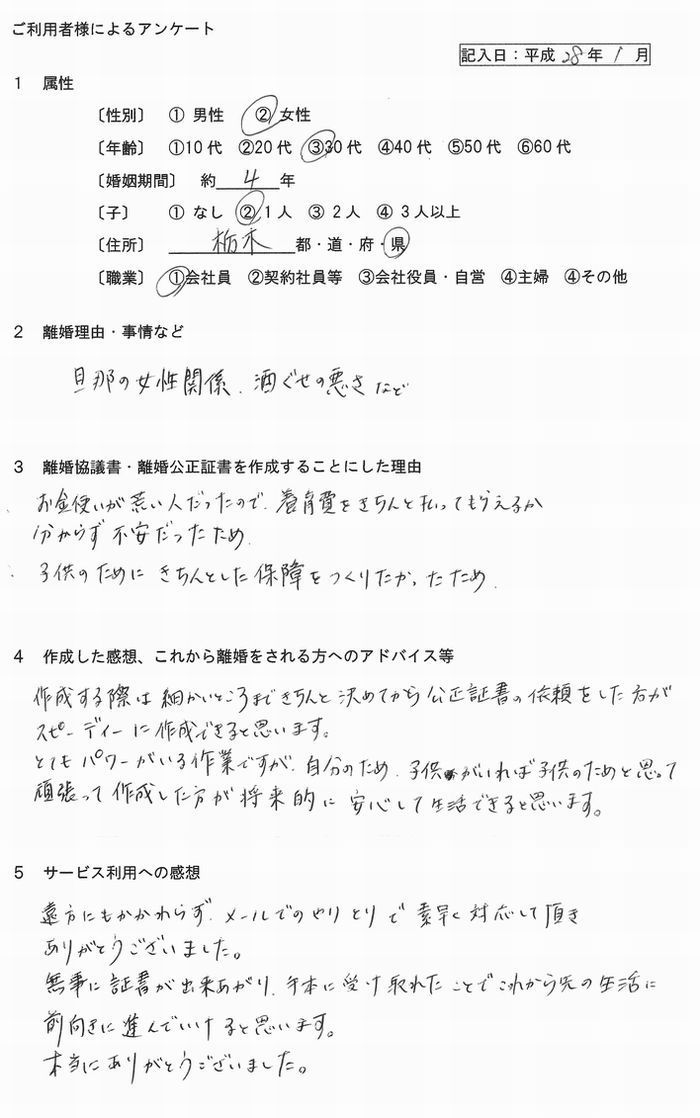 ご利用者様によるアンケート
記入日：平成 28 年 1 月
1 属性
〔性別〕 ① 男性 ② 女性
〔年齢〕 ①10代 ②20代 ③30代 ④40代 ⑤50代 ⑥60代
〔婚姻期間〕 約 4 年
〔子〕 ① なし ② 1人 ③ 2人 ④ 3人以上
〔住所〕 栃木 都・道・府・県
〔職業〕 ①会社員 ②契約社員等 ③会社役員・自営 ④主婦 ④その他
2 離婚理由・事情など
旦那の女性関係、酒ぐせの悪さなど
3 離婚協議書・離婚公正証書を作成することにした理由
お金使いが荒い人だったので、養育費をきちんと払ってもらえるか
分からず不安だったため。
子供のためにきちんとした保障をつくりたかったため。
4 作成した感想、これから離婚をされる方へのアドバイス等
作成する際は細かいところまできちんと決めてから公正証書の依頼をした方が
スピーディーに作成できると思います。
とてもパワーがいる作業ですが、自分のため、子供がいれば子供のためと思って
頑張って作成した方が将来的に安心して生活できると思います。
5 サービス利用への感想
遠方にもかかわらず、メールでのやりとりで素早く対応して頂き
ありがとうございました。
無事に証書が出来あがり、手本に受け取れたことでこれから先の生活に
前向きに進んでいけると思います。
本当にありがとうございました。